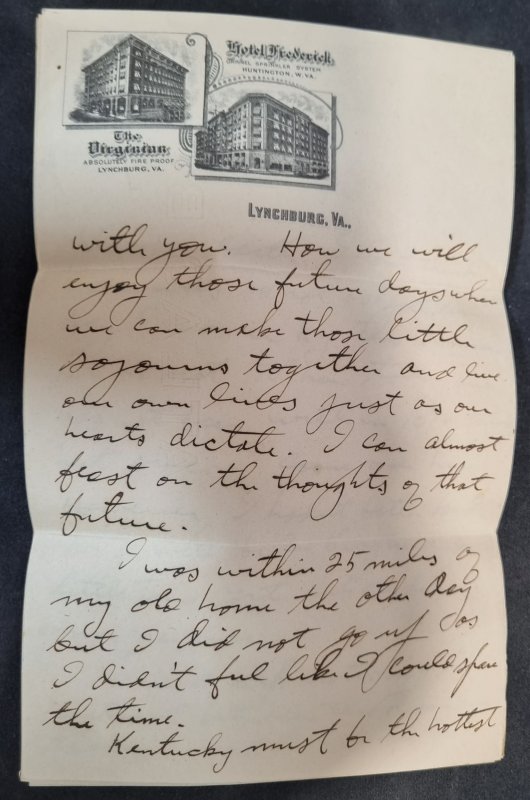 Hotel Frederick
GRINNEL SPRINKLER SYSTEM
HUNTINGTON, W. VA.
The
Virginian
ABSOLUTELY FIRE PROOF
LYNCHBURG, VA.
LYNCHBURG, VA.,
with you. How we will
enjoy those future days when
we can make those little
sojourns together and live
our own lives just as our
hearts dictate. I can almost
feast on the thoughts of that
future.
I was within 25 miles of
my old home the other day
but I did not go up as
I didn't feel like I could spare
the time.
Kentucky must be the hottest